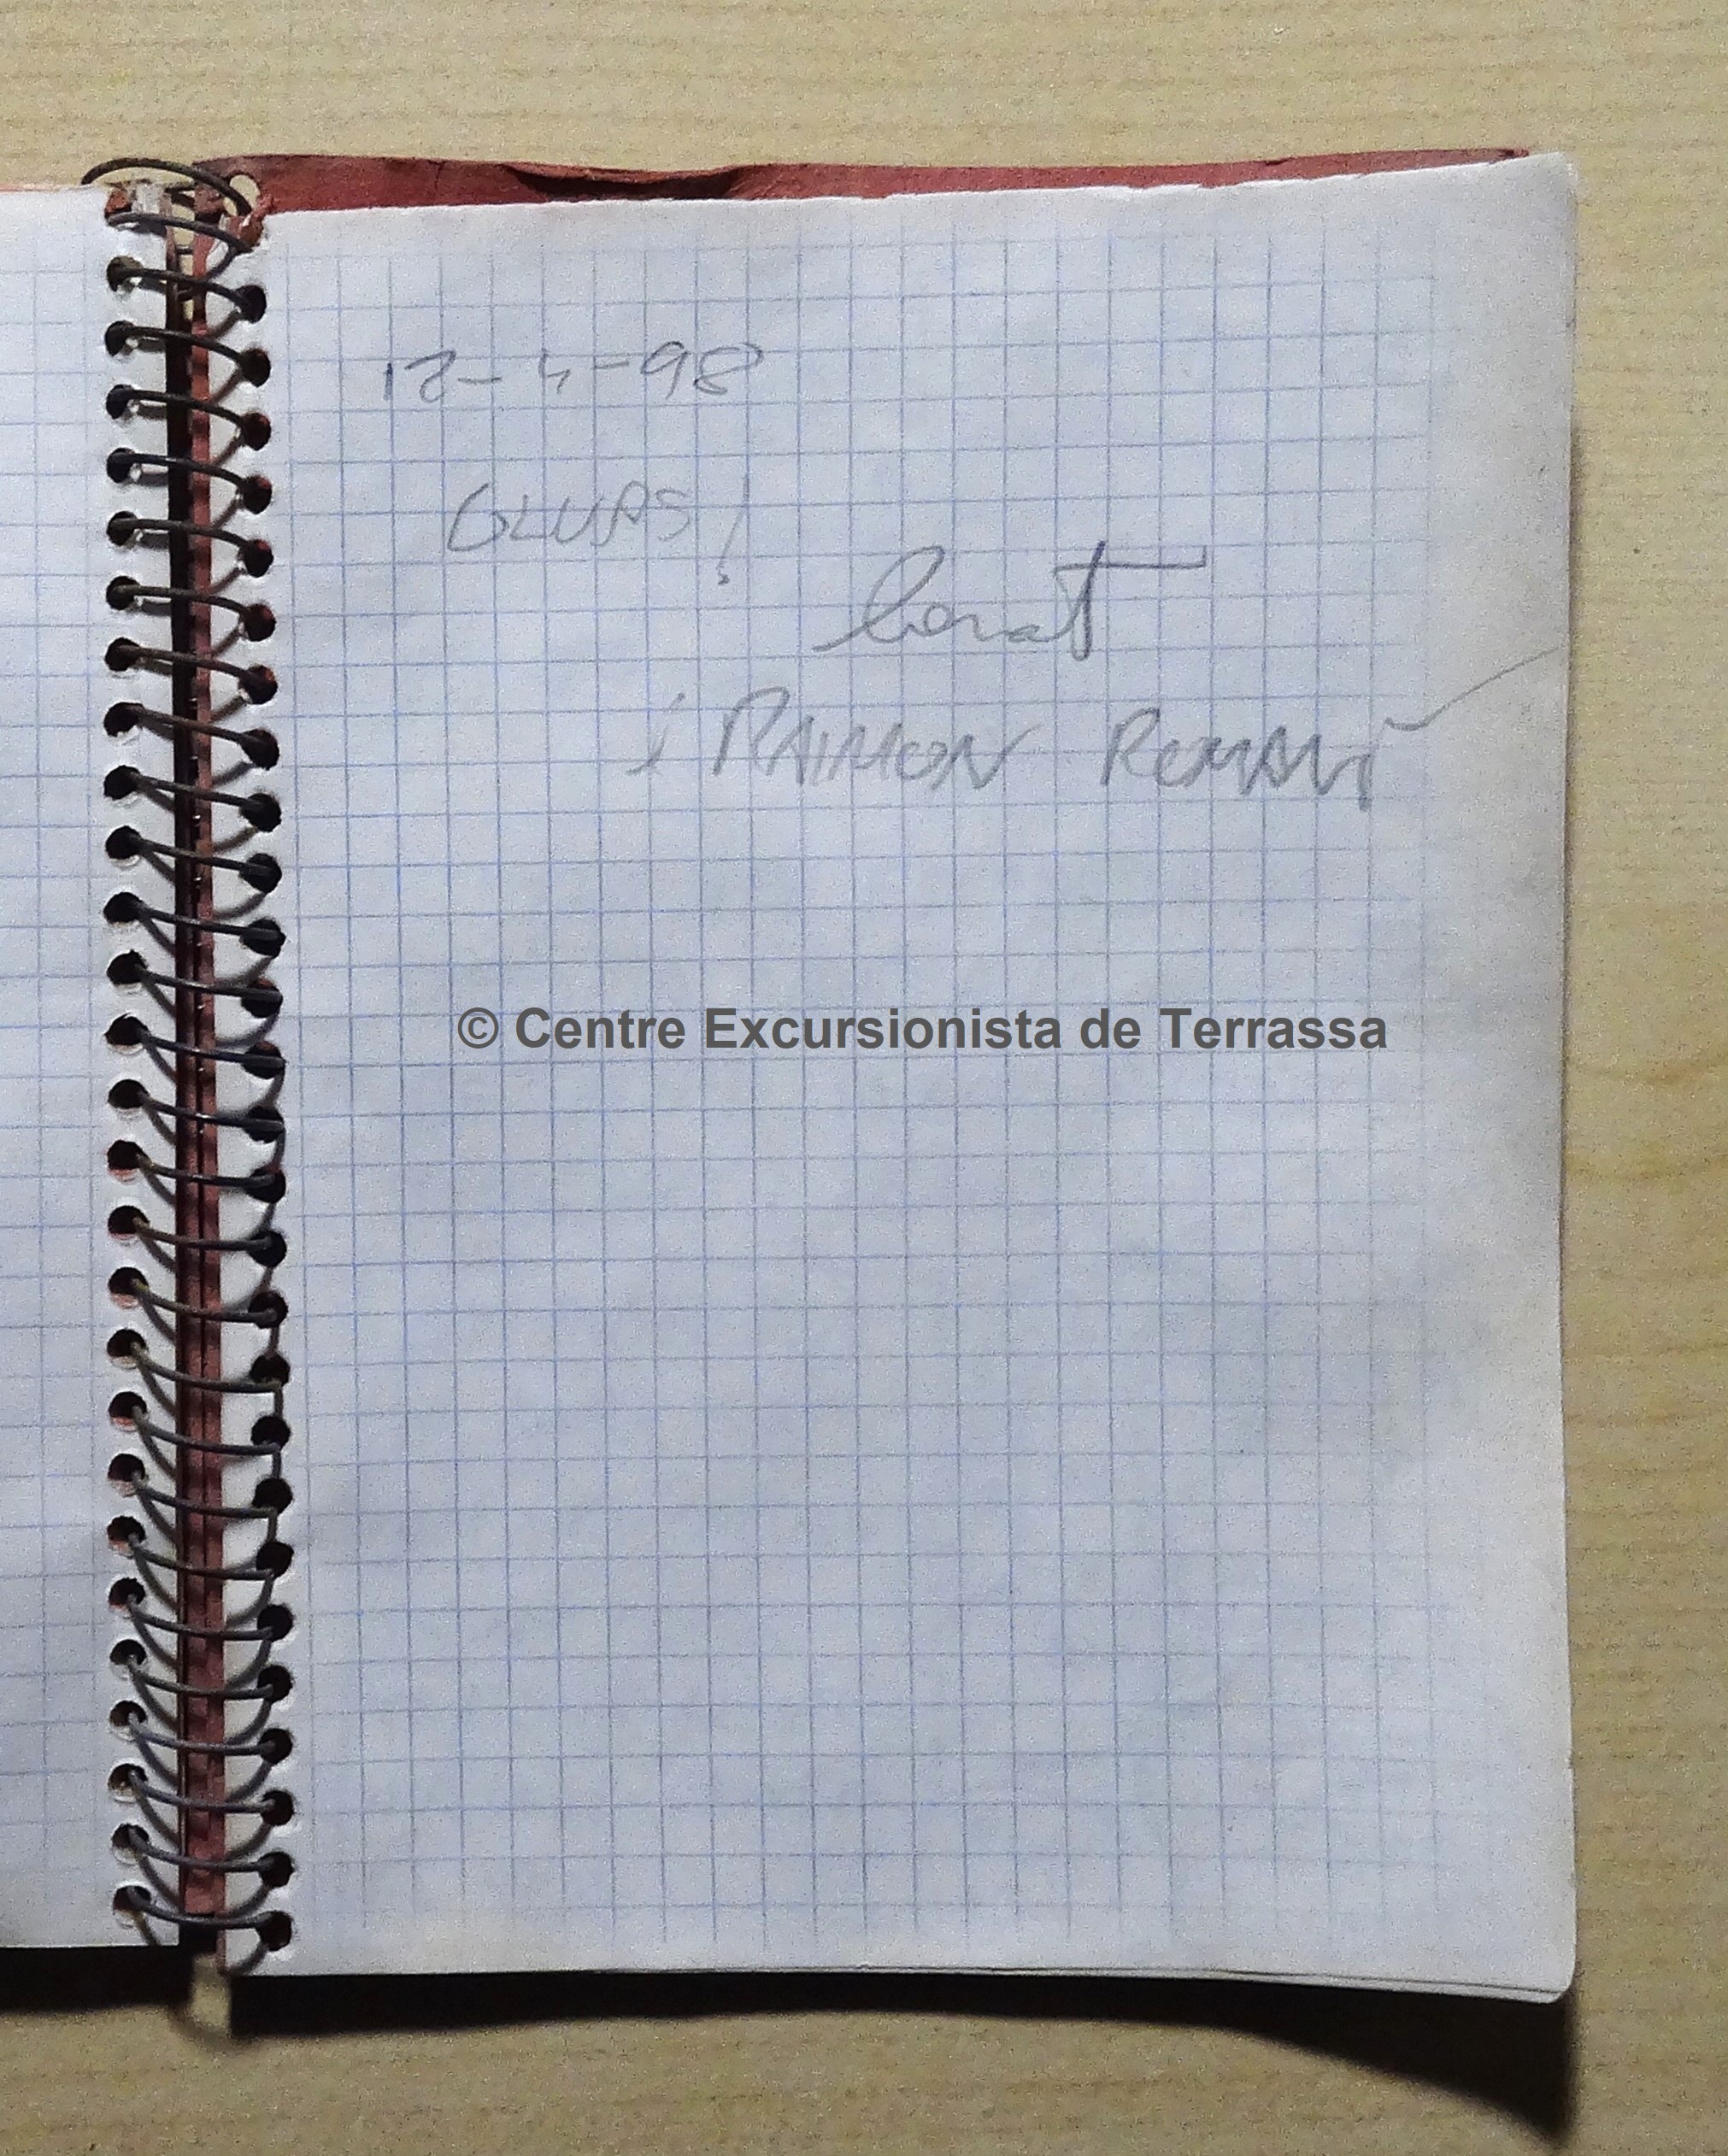 12-4-98
GLUPS!
i RAIMON ROMANÍ
© Centre Excursionista de Terrassa